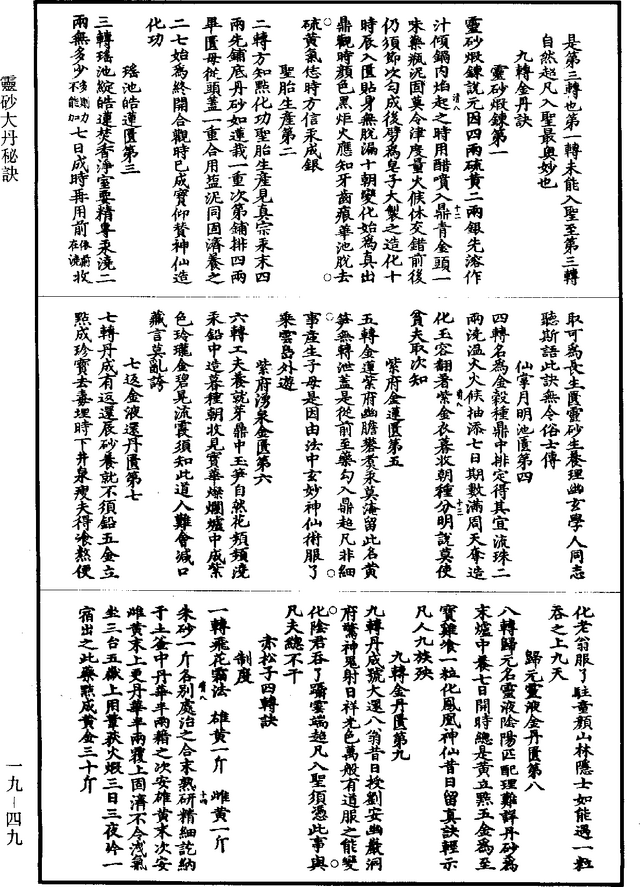 是第三轉也第一轉未能入聖至第三轉
自然超凡入聖最奧妙也
九轉金丹訣
靈砂煅鍊第一
靈砂煅鍊說元因四兩硫黃二兩銀先溶作
汁傾鍋內焰起之時用醋噴入鼎青金頭一
味藥瓶泥固莫令津度量火候休交錯前後
仍須節次勻成後劈為皂子大製之造化十
時辰入匱貼身無脫漏十朝變化始為真出
鼎觀時顏色黑炬火應知牙齒痕華池脫去
硫黃氣恁時方信汞成銀
聖胎生產第二
二轉方知點化功聖胎生產見真宗汞末四
兩先鋪底丹砂如蓮栽一重次第鋪排四兩
單匱母從頭蓋一重合用盐泥同固濟養之
二七始為終開合觀時已成寶仰贊神仙造
化功
瑤池皓蓮匱第三
三轉瑤池綻皓蓮焚香淨室要精專汞澆二
兩無多少不多剛功能加七日成時再用前收
取可為長生匱靈砂生養理幽玄學人同志
聽斯語此訣無令俗士傳
仙掌月明池匱第四
四轉名為金穀種鼎中排定得其宜流珠二
兩洗溫火火候抽添七日期數滿周天奪造
化玉容翻著紫金衣暮收朝種分明說莫使
貧夫取次知
紫府金蓮匱第五
五轉金蓮紫府幽膽礬煑汞莫淹留此名黃
筍無轉泄蓋是從前至藥勾入鼎超凡非細
事產生子母是因由法中玄妙神仙術服了
乘雲島外遊
紫府湧泉金匱第六
六轉工夫養就芽鼎中玉笋自然花頻頻澆
汞鉛中造暮種朝收見寶華燦爛爐中成紫
色玲瓏金碧見流霞須知此道人難會減口
藏言莫亂誇
七返金液還丹匱第七
七轉丹成有返還辰砂養就不須鉛五金立
點成珍寶去毒埋時下井泉瘦夫得飡熬便
化老翁服了駐童顏山林隱士如能遇一粒
吞之上九天
歸元靈液金丹匱第八
八轉歸元名靈液陰陽匹配理難詳丹砂為
末爐中養七日開時總是黃立點五金為至
寶雞飡一粒化鳳凰神仙昔日留真訣輕示
凡人九族殃
九轉金丹匱第九
九轉丹成號大還八翁昔日授劉安幽嚴洞
府驚神鬼射日祥光色萬般有道服之能變
化陰君吞了躡雲端超凡入聖須憑此事與
凡夫總不干
赤松子四轉訣
制度
一轉飛花霜法 雄黃一斤 雌黃一斤
朱砂一斤各別處治之合末熟研精細訖納
于土釜中丹華半兩藉之次安雄黃末次安
雌黃末上更丹華半兩覆上固濟不令洩氣
坐三台五嶽上用葦荻火煅三日三夜冷一
宿出之此藥點成黃金三十斤
靈砂大丹秘訣
一九－四九